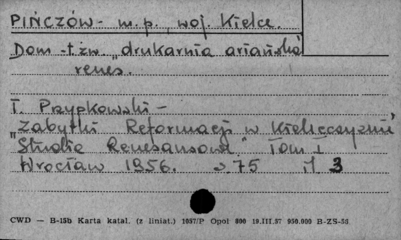 PIŃCZÓW - m.p., woj. Kielce.
Dom - t.zw. „drukarnia ariańska"
renes.
T. Przypkowski -
„Zabytki Reformacji w Kielecczyźnie"
„Studia Renesansowe" Tom I
Wrocław 1956. s. 75 il 3
CWD — B-15b Karta katal. (z liniat.) 1057/P Opol 800 19.III.57 950.000 B-ZS-55